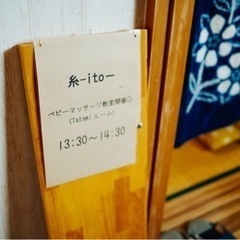 糸-ito-
ベビーマッサージ教室開催◎
(Tatamiルーム)
13:30〜14:30